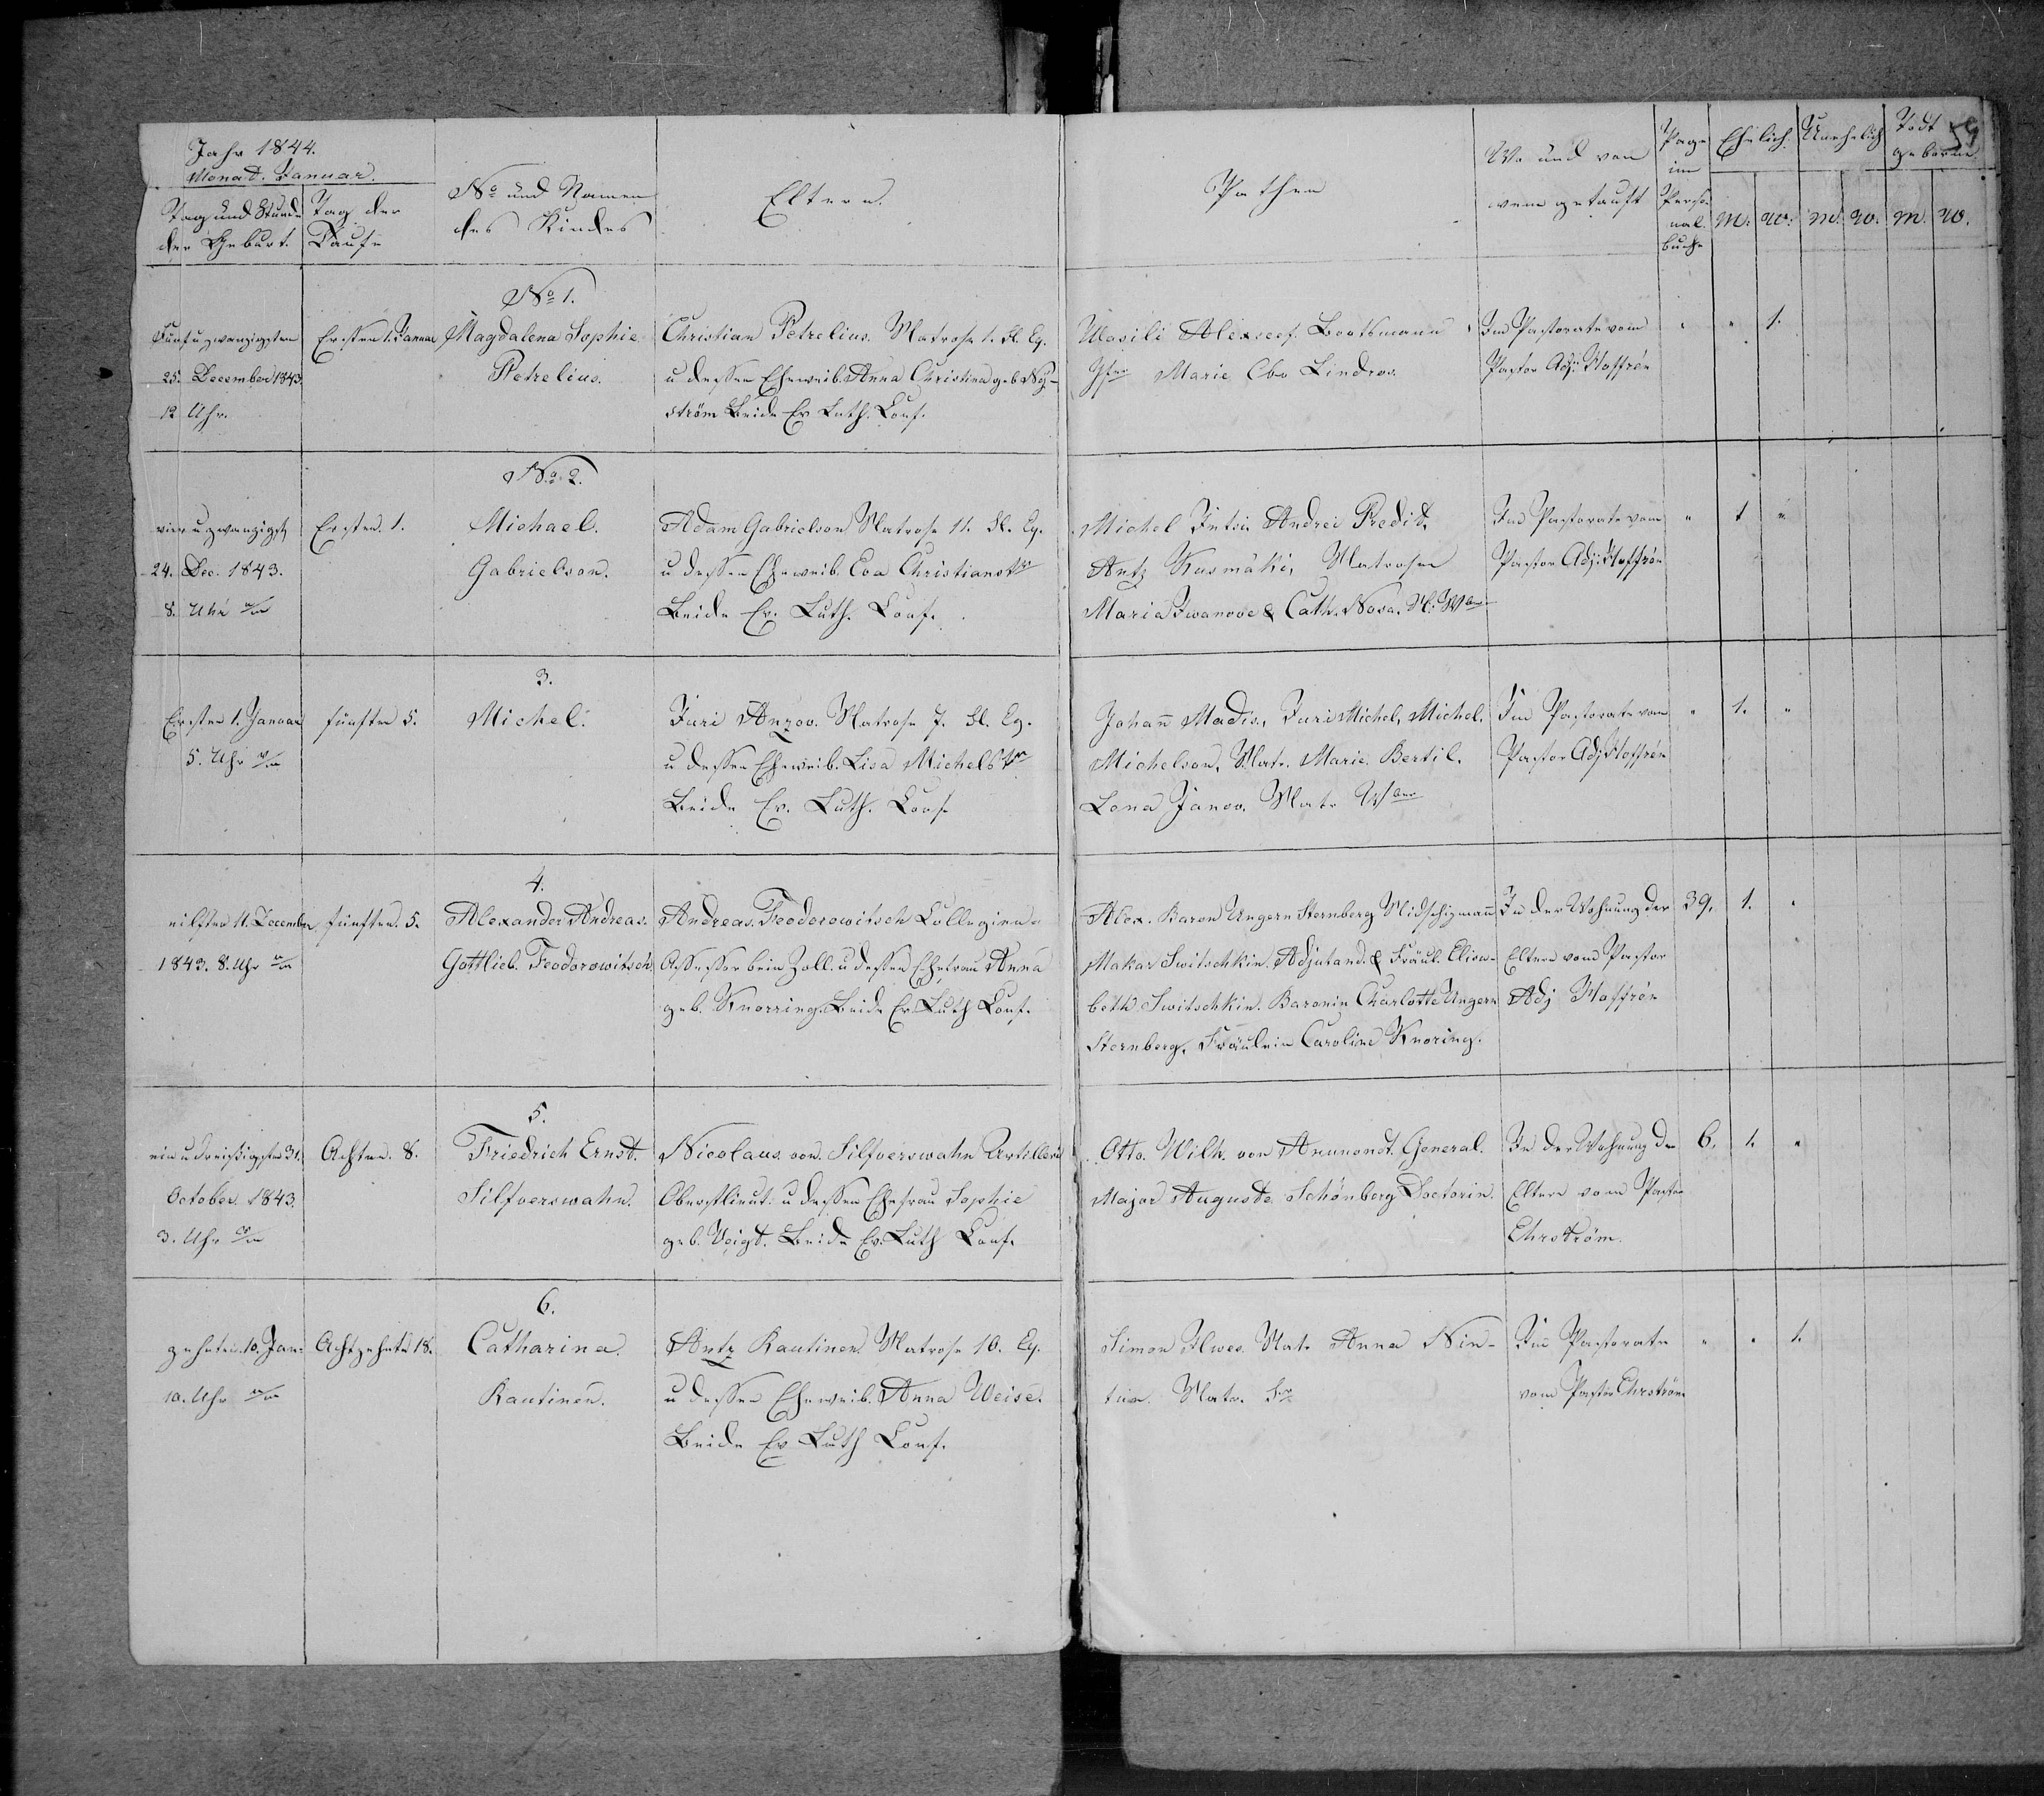 Jahr 1844.
Monat. Januar.
Tag und Stunde der Geburt.
Tag der Taufe
No und Namen des Kindes
Eltern.
Pathen
Wo und von wem getauft
Page im Personalbuche
Ehelich.
Unehelich
Todt geboren.
59
M. W. M. W. M. W.
No 1.
Fünf u zwanzigsten
25. December 1843.
12 Uhr.
Ersten 1. Januar
Magdalena Sophie
Petrelius.
Christian Petrelius. Matrose 1. Fl. Eq.
u dessen Eheweib. Anna Christina geb. Ny-
ström Beide Ev Luth. Conf.
Wasili Alexeef. Bootsmann
Marie Lindros.
Im Pastorate vom
Pastor Adj:
" " 1.
No 2.
vier u zwanzigst
24. Dec. 1843.
8. Uhr
Ersten. 1.
Michael.
Gabrielson.
Adam Gabrielson Matrose 11. Fl. Eq.
u dessen Eheweib. Eva Christianstr
Beide Ev. Luth. Conf.
Michel Intsi. Andrei Predit,
Antz Kusmäki, Matrosen
Maria Iwanove & Cath. Nova.
Im Pastorate vom
Pastor Adj:
" 1 "
3.
Ersten 1. Januar
5. Uhr
fünften 5.
Michel.
Juri Anzov. Matrose 7. Fl. Eq.
u dessen Eheweib. Lisa Michelstr
Beide Ev. Luth. Conf.
Johañ Madis, Juri Michel, Michel.
Michelson, Matr. Marie. Bertil.
Lena Janov. Matr Wber
Im Pastorate vom
Pastor Adj
" 1. "
4.
eilften 11. December
1843. 8. Uhr
fünften. 5.
Alexander Andreas.
Gottlieb. Feodorowitsch
Andreas. Feodorowitsch Collegien
Assessor beim Zoll. u dessen Ehefrau Anna
geb. Knorring. Beide Ev. Luth Conf.
Alex. Baron Ungern Sternberg Midschipmañ
Makar Switschkin. Adjutand. & Fräul. Elisa-
beth Switschkin. Baronin Charlotte Ungern
Sternberg, Fräulein Caroline Knoring.
In der Wohnung der
Eltern vom Pastor
Adj
39. 1. "
5.
ein u dreißigsten 31.
October 1843.
3. Uhr
Achten. 8.
Friedrich Ernst.
Silfverswahn.
Nicolaus von. Silfverswahn Artillerie
Oberstlieut: u dessen Ehefrau Sophie
geb. Voigt. Beide Ev. Luth Conf.
Otto. Wilh. von General.
Major Auguste Schönberg Doctorin.
In der Wohnung der
Eltern vom Pastor
Ehrström.
6. 1. "
6.
zehnten. 10. Jan:
10. Uhr
Achtzehnten 18.
Catharina.
Kautinen.
Antz Kautinen Matrose 10. Eq.
u dessen Eheweib. Anna Weise.
Beide Ev Luth Conf.
Simon Matr Anna Nin-
Matr.
Im Pastorate
vom Pastor Ehrström
" " 1.